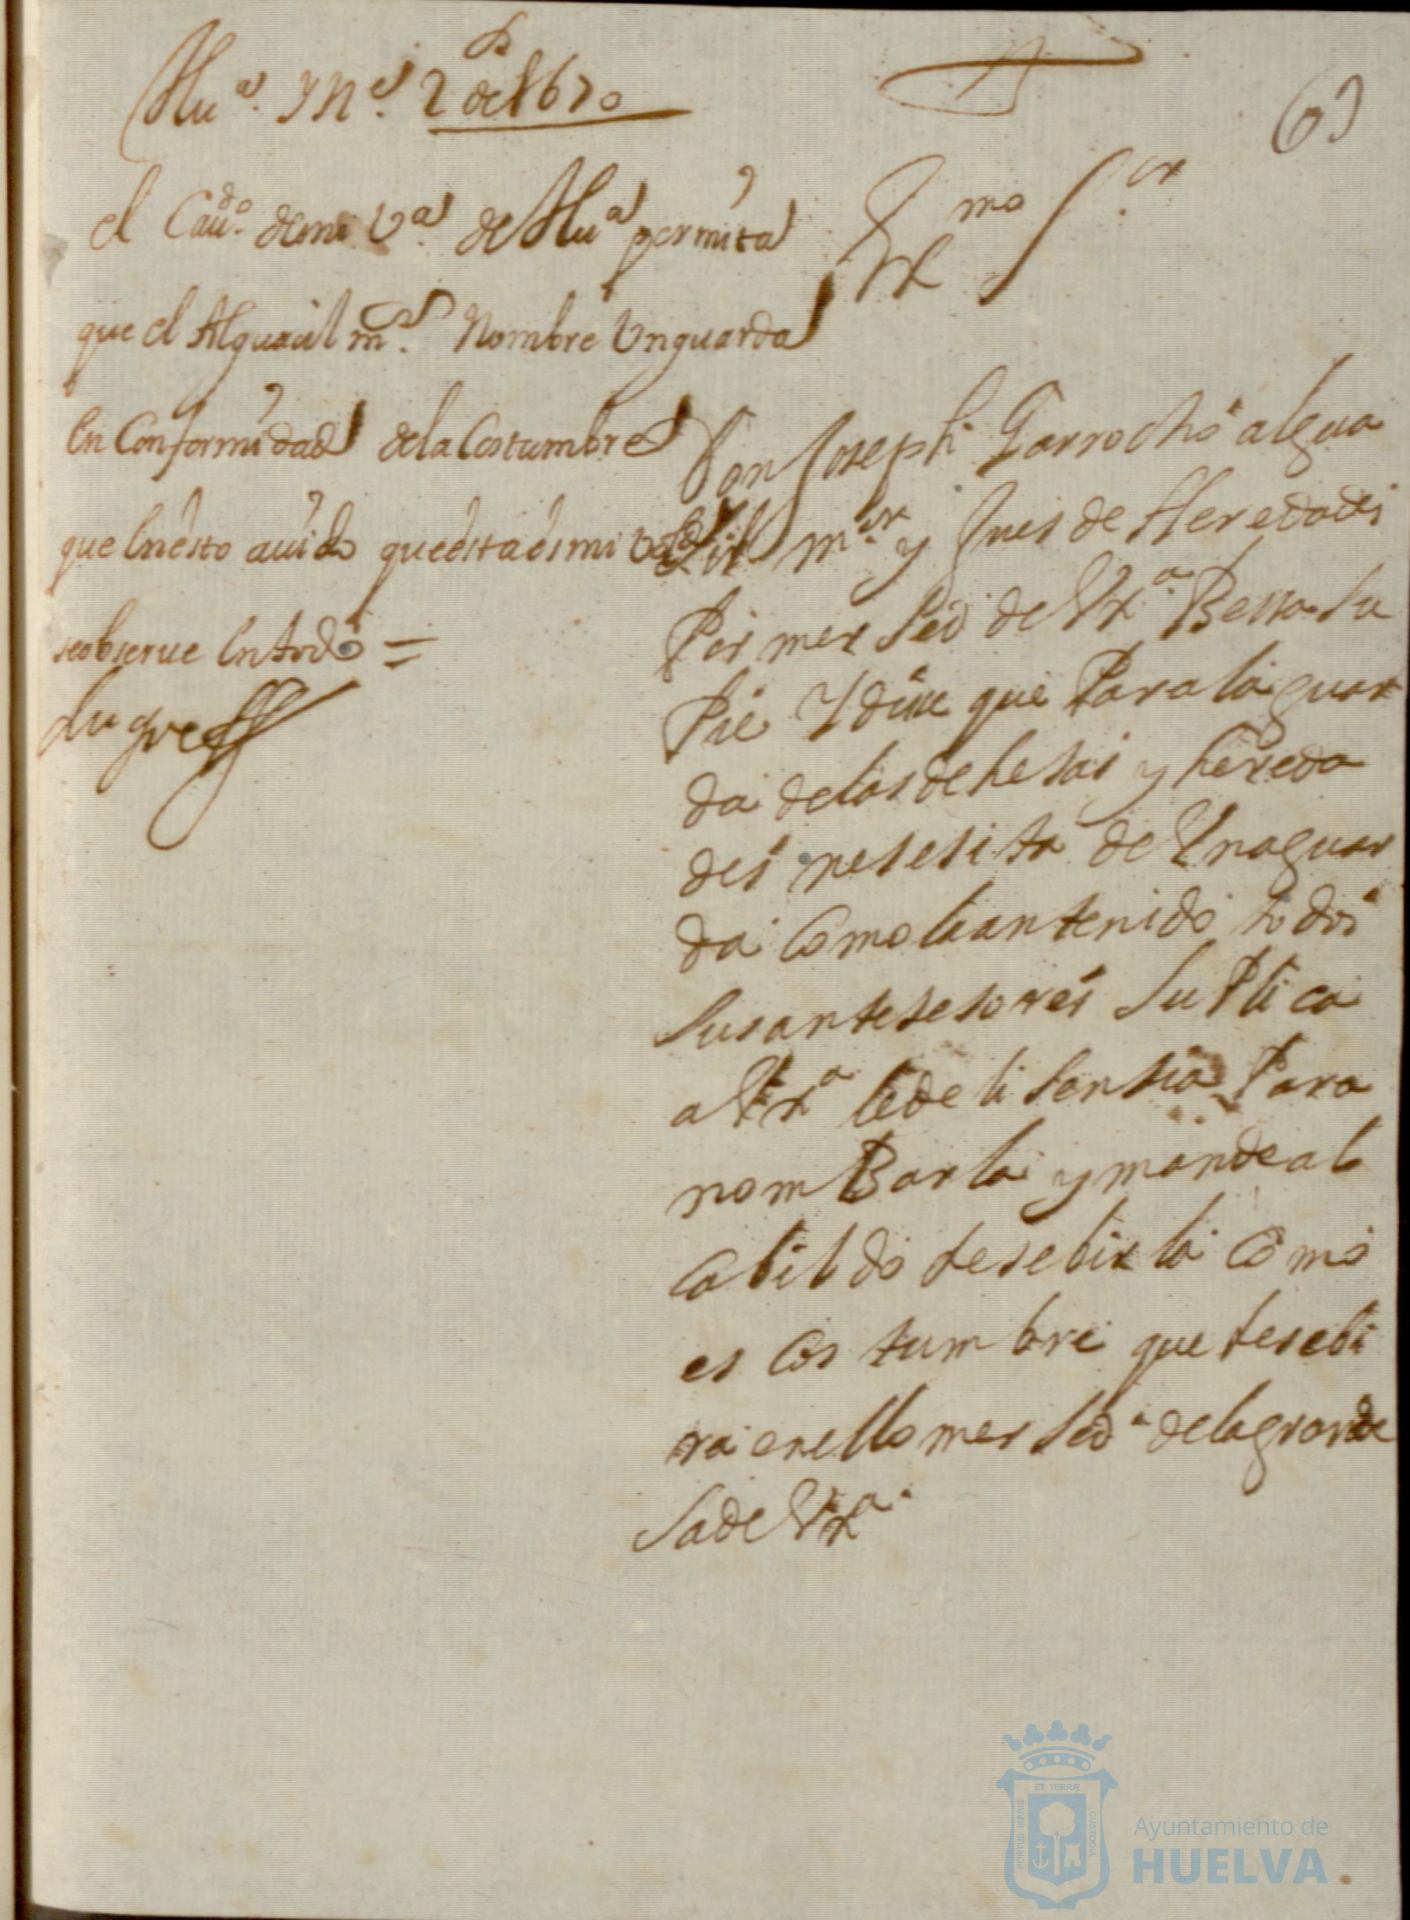 Hu.ª y n.º 2 de 1670
63
el Cau.do de mi V.ª de Hu.ª permita
que el Alguacil m.or Nombre Un guarda
En Conformidad de la Costumbre
que En esto auido que esta es mi
se obserue En todo =
Ex.mo S.or
Don Joseph Garrocho algua
sil m.or y Jues de Heredades
Por mersed de V Ex.ª Bessa su
Pie Y dise que Para la guar
da de las dehesas y hereda
des nesesita de Una guar
da Como la an tenido todos
sus antesesores suplica
a V Ex.ª le de lisensia Para
nombarla y mande al
Cabildo resebirla Como
es Costumbre que resebi
ra en ello mersed de la grande
sa de V Ex.ª
ET TERRÆ
PORTUS MARIS
CUSTODIA
Ayuntamiento de
HUELVA